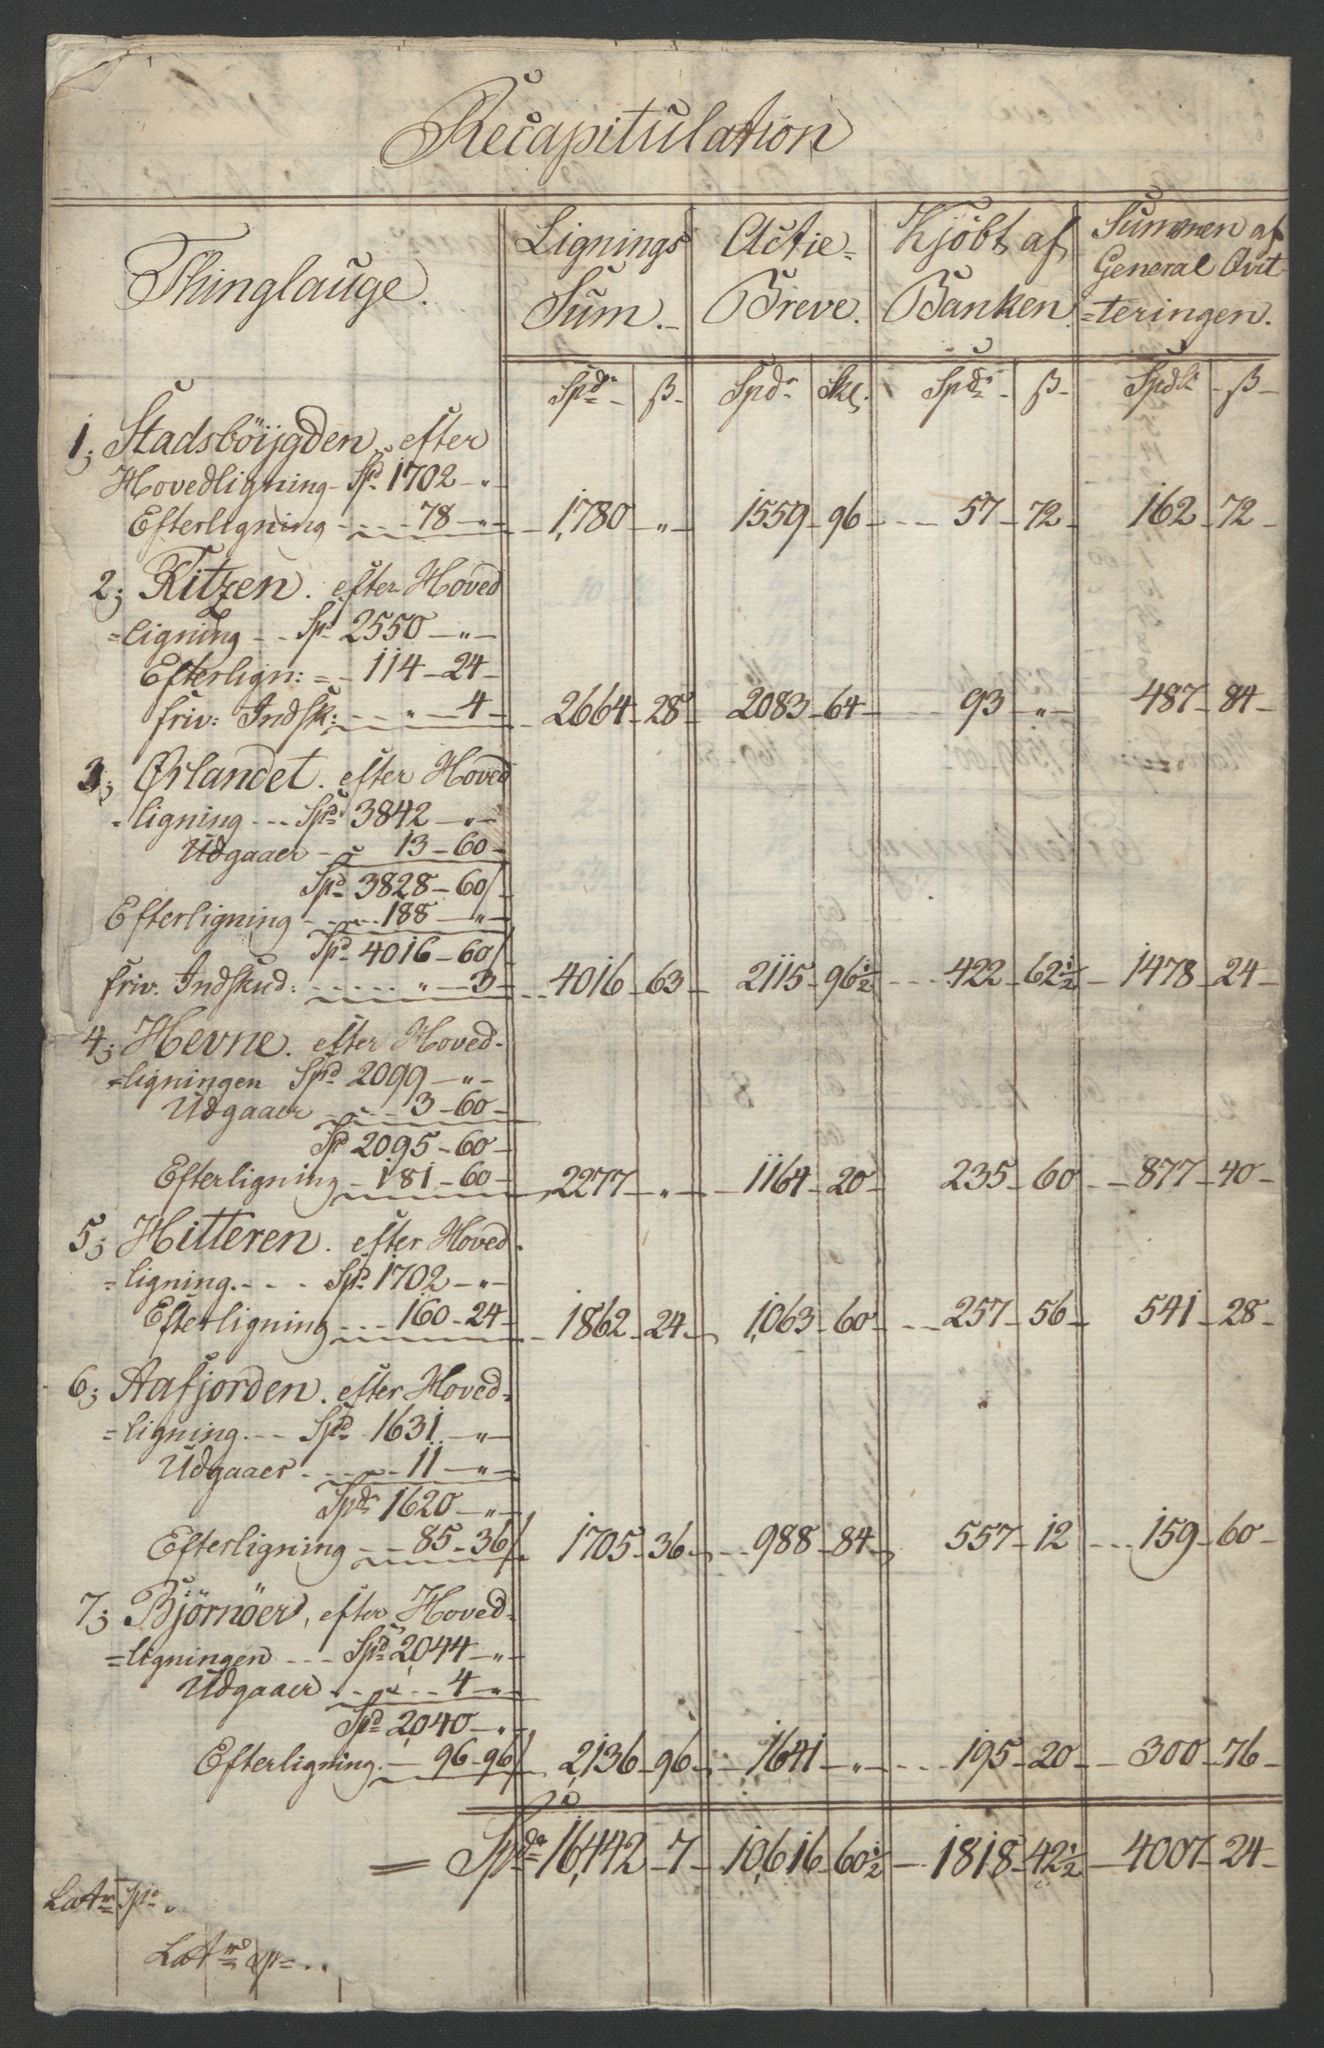 Recapitulation
Thinglauge. Lignings Sum. Actie= Breve. Kjöbt af Banken Summen af General Qvit= =teringen.
Spdr ß Spdr Sk. Spdr ß Spdlr ß
1; Stadsböijgden, efter
Hovedligning - Spd. 1702 - " -
Efterligning - - - 78 - " - 1,780 - " - 1559 - 96 - 57 - 72 - 162 - 72 -
2; Ritzen. efter Hoved
=ligning - - Spd 2550 - " -
Efterlign: = - 114 - 24 -
friv: Indsk: - - - " - 4 - 2664 - 28 - 2083 - 64 - 93 - " - 487 - 84 -
3; Ørlandet. efter Hoved
=ligning - - - Spd 3842 - " -
Udgaaer - - 13 - 60 -
Spd 3828 - 60
Efterligning - - - 188 - " -
Spd 4016 - 60
friv. Indskud: - - - " - 3 - 4016 - 63 - 2115 - 96½ - 422 - 62½ - 1478 - 24 -
4; Hevne. efter Hoved-
=ligningen Spd 2099 - " -
Udgaaer - - - 3 - 60 -
Spd 2095 - 60 -
Efterligning - 181 - 60 - 2277 - " - 1164 - 20 - 235 - 60 - 877 - 40 -
5; Hitteren. efter Hoved-
=ligning. - - - Spd. 1702 - " -
Efterligning - - - 160 - 24 - 1862 - 24 - 1,063 - 60 - 257 - 56 - 541 - 28 -
6; Aafjorden. efter Hoved-
=ligning. - - Spd 1631 - " -
Udgaaer - - - - 11 - " -
Spdr 1620 - " -
Efterligning - - 85 - 36 1705 - 36 - 988 - 84 - 557 - 12 - 159 - 60 -
7; Björnöer, efter Hoved-
=ligningen - - - Spd 2,044 - " -
Udgaaer - - - - 4 - " -
Spd 2,040 - " -
Efterligning. - 96 - 96 2,136 - 96 - 1641 - " - 195 - 20 - 300 - 76 -
= Spdr 16,442 - 7 - 10,616 - 60½ - 1818 - 42½ - 4007 - 24 -
Latr Spd .
Latrs Sp ..